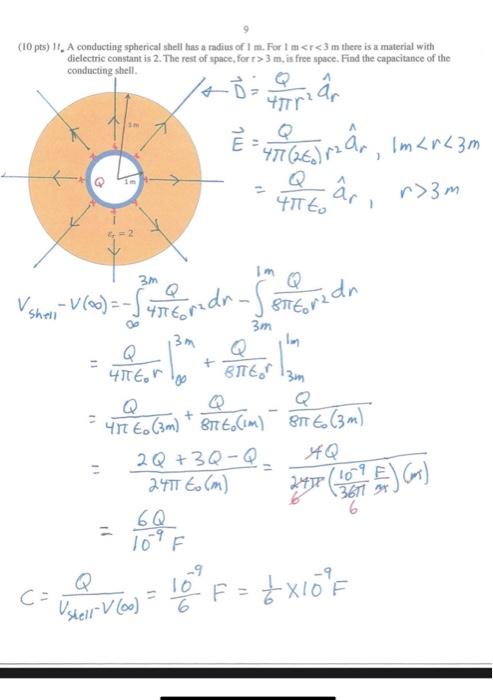 9
(10 pts) 11. A conducting spherical shell has a radius of 1 m. For 1 m < r < 3 m there is a material with
dielectric constant is 2. The rest of space, for r > 3 m, is free space. Find the capacitance of the
conducting shell.
D⃗ = Q / 4πr² â_r
E⃗ = Q / 4π(2ε₀)r² â_r , 1m<r<3m
= Q / 4πε₀ â_r , r>3m
3m
Q
1m
ε_r = 2
V_shell - V(∞) = -∫_∞^3m Q / 4πε₀r² dr - ∫_3m^1m Q / 8πε₀r² dr
= Q / 4πε₀r |_∞^3m + Q / 8πε₀r |_3m^1m
= Q / 4πε₀(3m) + Q / 8πε₀(1m) - Q / 8πε₀(3m)
= 2Q + 3Q - Q / 24πε₀(m) = 4Q / 24π (10⁻⁹ / 36π F / m) (m)
6 6
= 6Q / 10⁻⁹ F
C = Q / V_shell - V(∞) = 10⁻⁹ / 6 F = 1/6 × 10⁻⁹ F